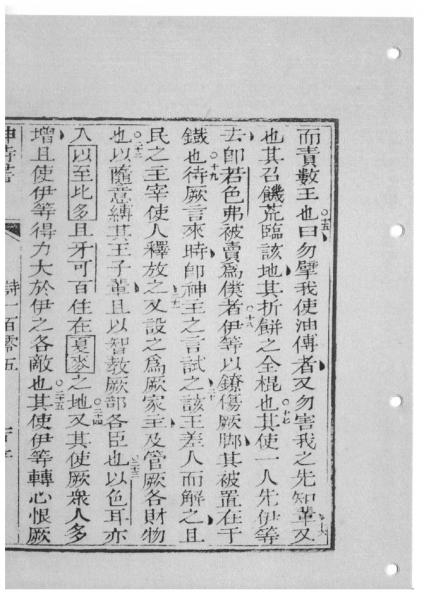 而責數王也○十五曰勿擘我使油傳者又勿害我之先知輩又十六
也其召饑荒臨該地其折餅之全棍也○十七其使一人先伊等
去即若色弗被賣爲僕者○十八伊等以鐐傷厥脚其被置在于
鐵也○十九待厥言來時即神主之言試之○二十該王差人而解之且
民之主宰使人釋放之○二十一又設之爲厥家主及管厥各財物
也○二十二以隨意縛其王子輩且以智教厥部各臣也○二十三以色耳亦
入以至比多且牙可百住在夏麥之地○二十四又其使厥衆人多
增且使伊等得力大於伊之各敵也○二十五其使伊等轉心恨厥
神詩書 詩一百零五